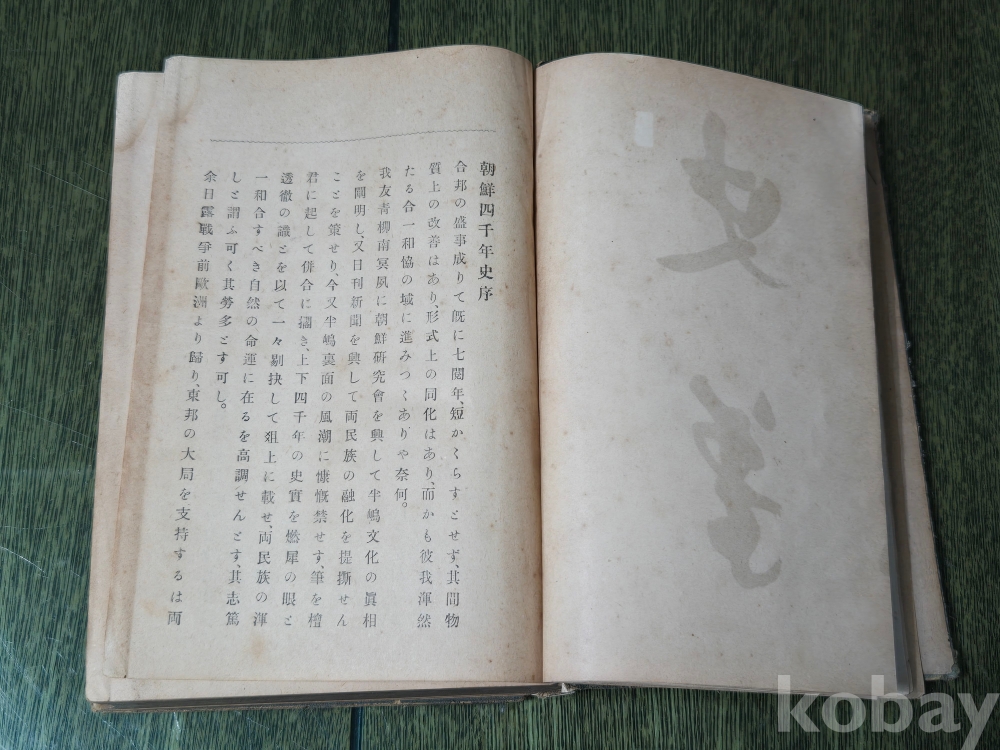 朝鮮四千年史序
合邦の盛事成りて既に七閲年、短かくらすとせず、其間物
質上の改善はあり、形式上の同化はあり、而かも彼我渾然
たる合一和協の域に進みつくありや奈何。
我友青柳南冥夙に朝鮮研究會を興して半嶋文化の眞相
を闡明し、又日刊新聞を興して両民族の融化を提撕せん
ことを策せり、今又半嶋裏面の風潮に慷慨禁せす、筆を檀
君に起して併合に擱き、上下四千年の史實を燃犀の眼と
透徹の識とを以て一々剔抉して俎上に載せ、両民族の渾
一和合すべき自然の命運に在るを高調せんとす、其志篤
しと謂ふ可く其勞多とす可し。
余日露戰爭前歐洲より歸り、東邦の大局を支持するは両
kobay